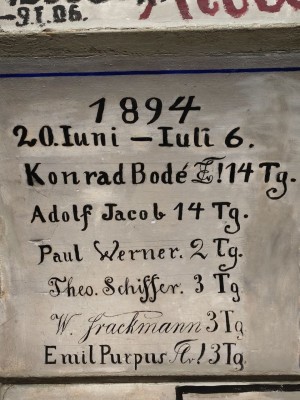 –9.I.06.
1894
20.Iuni – Iuli 6.
Konrad Bodé ! 14 Tg.
Adolf Jacob 14 Tg.
Paul Werner. 2 Tg.
Theo. Schiffer. 3 Tg
W. Frackmann 3 Tg
Emil Purpus ! 3 Tg